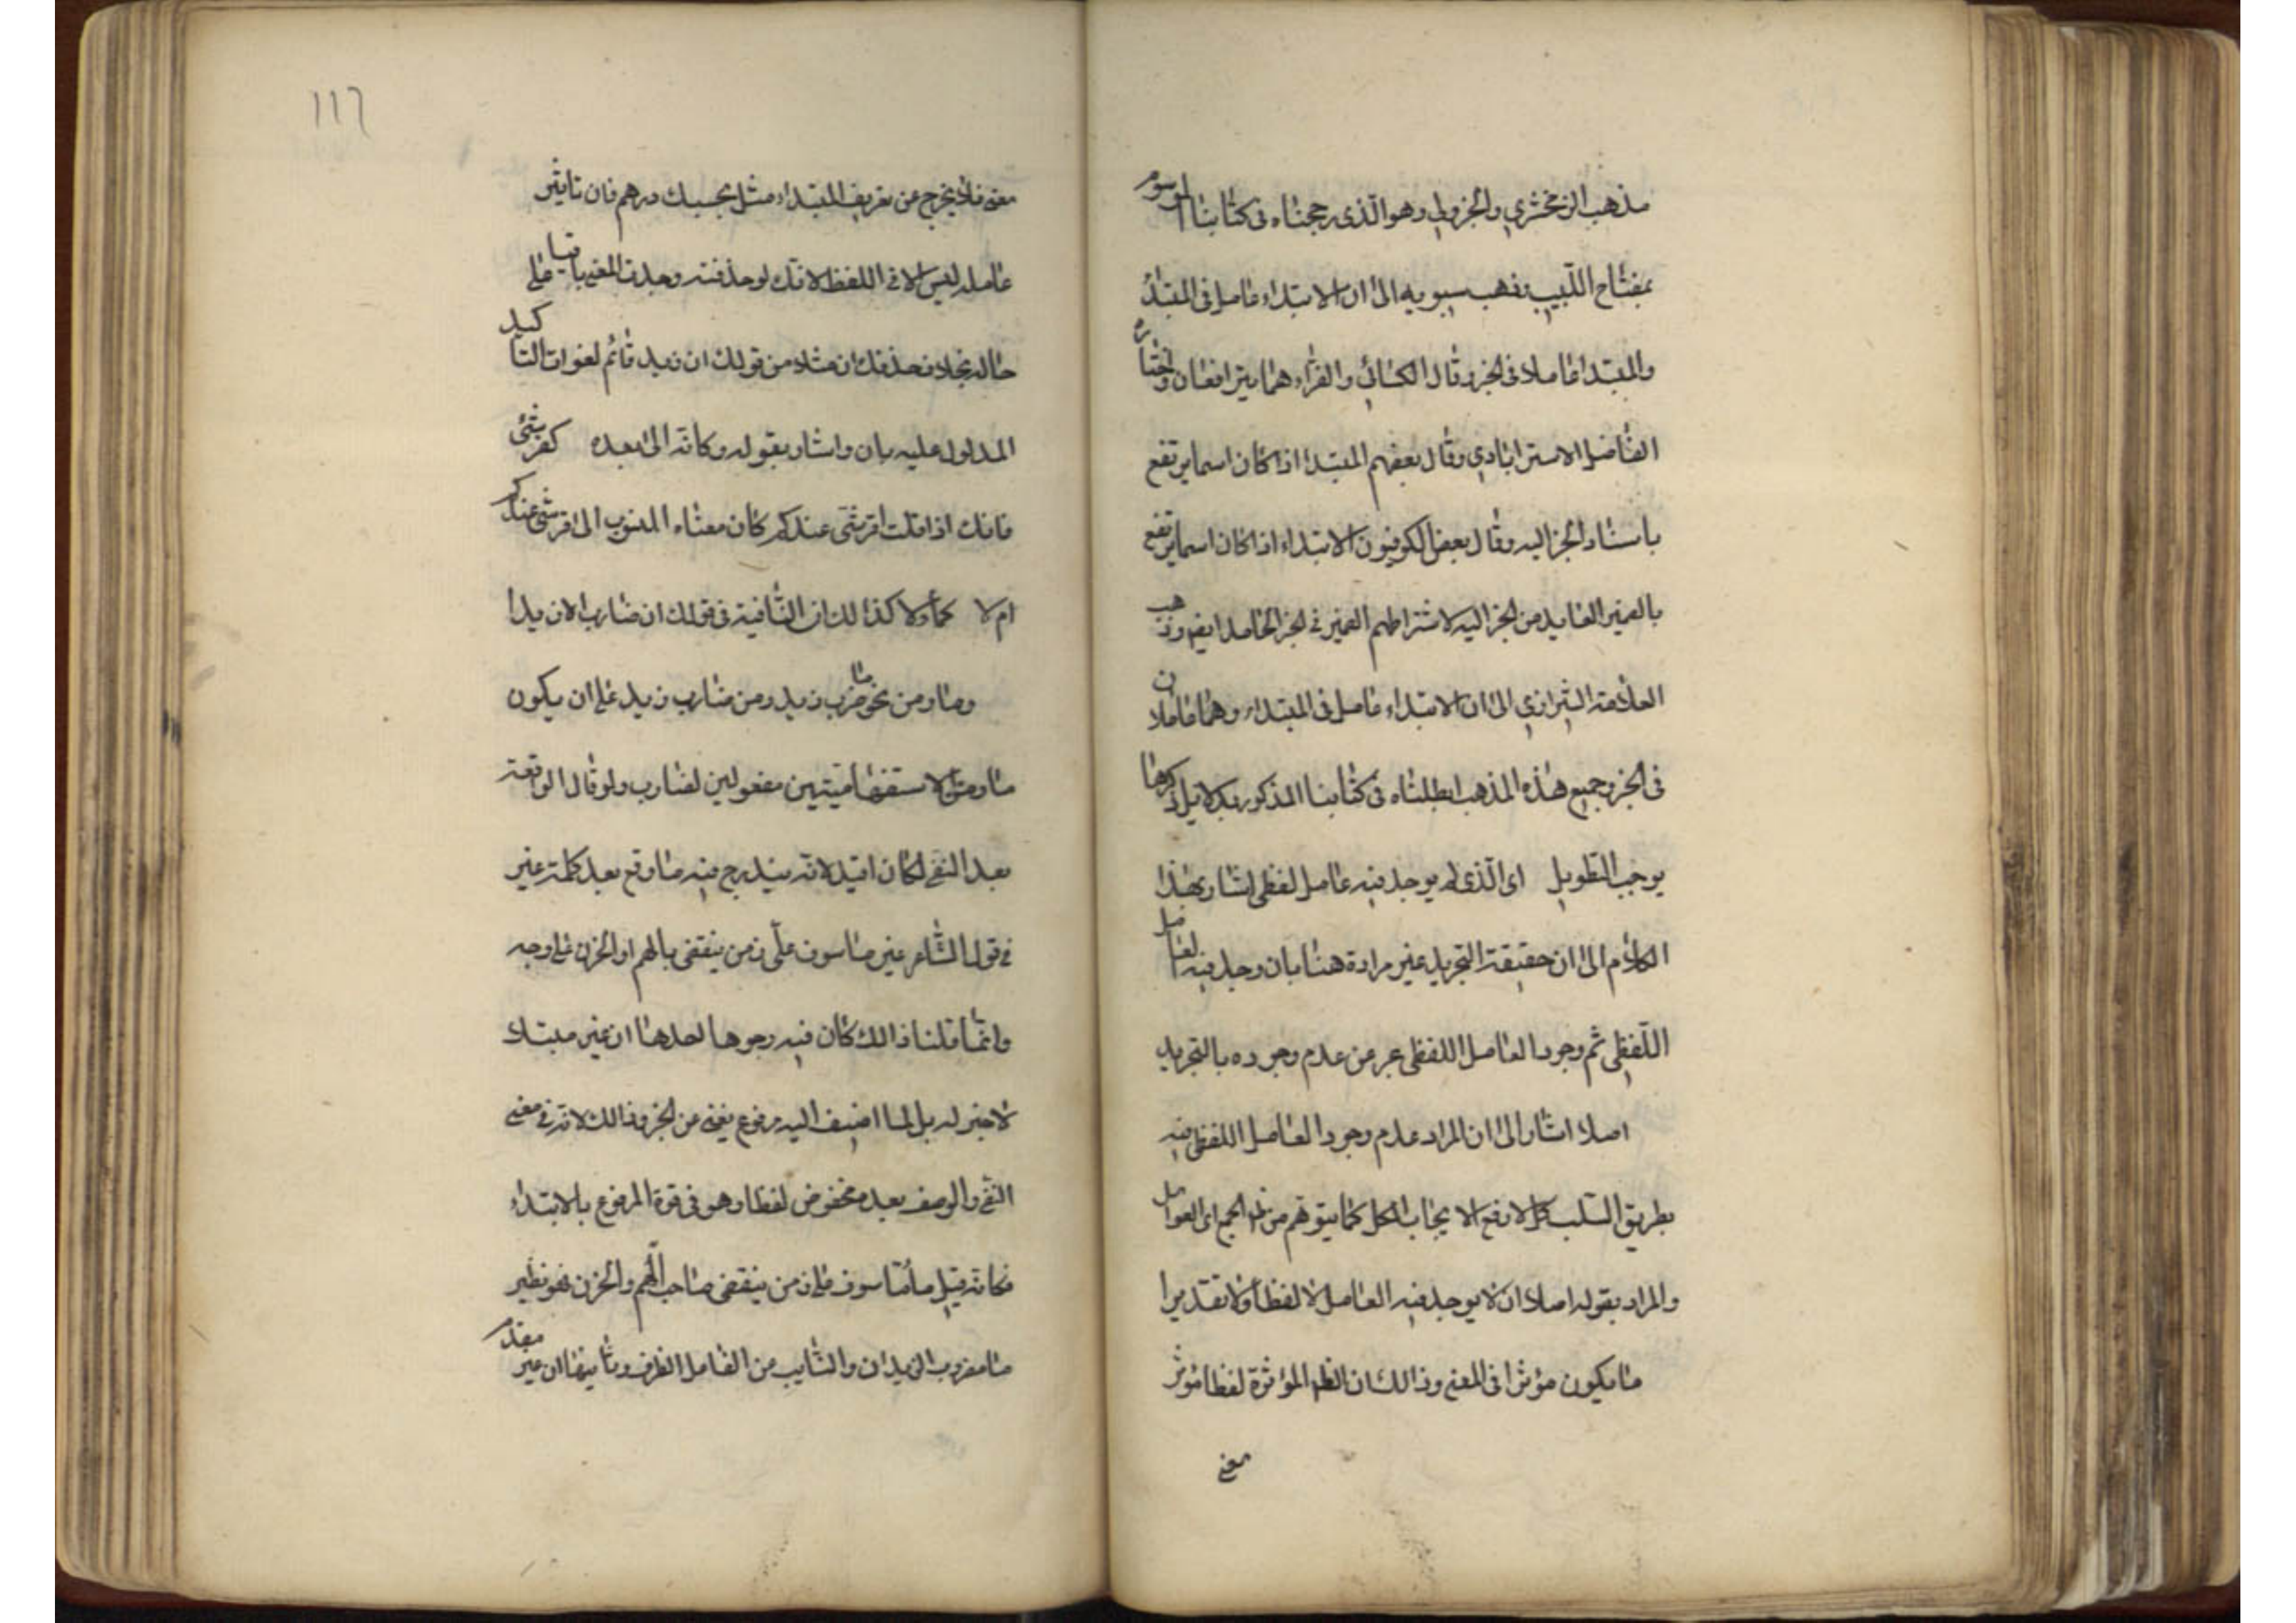 مذهب الزمخشري والجزولي وهو الّذى رجحناه فى كتابنا الموسوم
بمفتاح اللّبيب وذهب سيبويه الى ان الابتداء عامل فى المبتدأ
والمبتدا عاملا فى الخبر وقال الكسائي والفرّاء هما يترافعان واختاره
الفاضل الاسترابادي وقال بعضهم المبتدا اذا كان اسما يرتفع
باسناد الخبر اليه وقال بعض الكوفيون الابتداء اذا كان اسما يرتفع
بالضمير العايد من الخبر اليه لاشتراطهم الضمير فى الخبر الجامد ايضا وذهب
العلّامة الشيرازي الى ان الابتداء عامل فى المبتداء وهما عاملان
فى الخبر وجميع هذه المذهب ابطلناه فى كتابنا المذكور بدلايل ذكرها
يوجب التّطويل اى الّذى لم يوجد فيه عامل لفظى اشار بهذا
الكلام الى ان حقيقة التجريد غير مرادة هنا بان وجد فيه العامل
اللّفظى ثم وجود العامل اللفظى عبر عن عدم وجوده بالتجريد
اصلا اشار الى ان المراد عدم وجود العامل اللفظى فيه
بطريق السّلب الكل لا رفع الايجاب الكل كما يتوهم من الجمع اى العوامل
والمراد بقوله اصلا ان لا يوجد فيه العامل لا لفظا ولا تقديرا
ما يكون مؤثرا فى المعنى وذالك ان المؤثرة لفظا مؤثر
معنى
١١٦
معنى فلا يخرج عن تعريف المبتداء مثل بحسبك درهم فان تاثير
عامله ليس الا فى اللفظ لانّك لو حذفته وجدت المعنى باقيا على
حاله بخلاف حذفك ان مثلا من قولك ان زيد قائم لفوات التاكيد
المدلول عليه بان واشار بقوله وكانّه الى بعده كقرشىّ
فانك اذا قلت اقرشىّ عندكم كان معناه المنسوب الى قرشى عندكم
ام لا كما ولا كذا لك ان النّافية فى قولك ان ضارب الا زيدا
وما ومن نحو ما ضرب زيد ومن ضارب زيد على ان يكون
ما ومن الاستفهاميتين مفعولين لضارب ولو قال الواقعة
بعد النفى لكان افيد لانّه يندرج فيه ما وقع بعد كلمة غير
فى قول الشّاعر غير ماسوف على زمن ينقضى بالهم والحزن على وجه
وانّما قلنا ذالك كان فيه وجوها احدها ان غير مبتدا
لا خبر له بل لما اضيف اليه مرفوع يغنى عن الخبر وذالك لانّه فى معنى
النفى والوصف بعده مخفوض لفظا وهو فى قوة المرفوع بالابتداء
فكانّه قيل ما ماسوف على زمن ينقضى صاحب الهم والحزن نحو نظير
ما مضروب الزيدان والنّايب عن الفاعل الظرف وثانيها ان غير مقدم